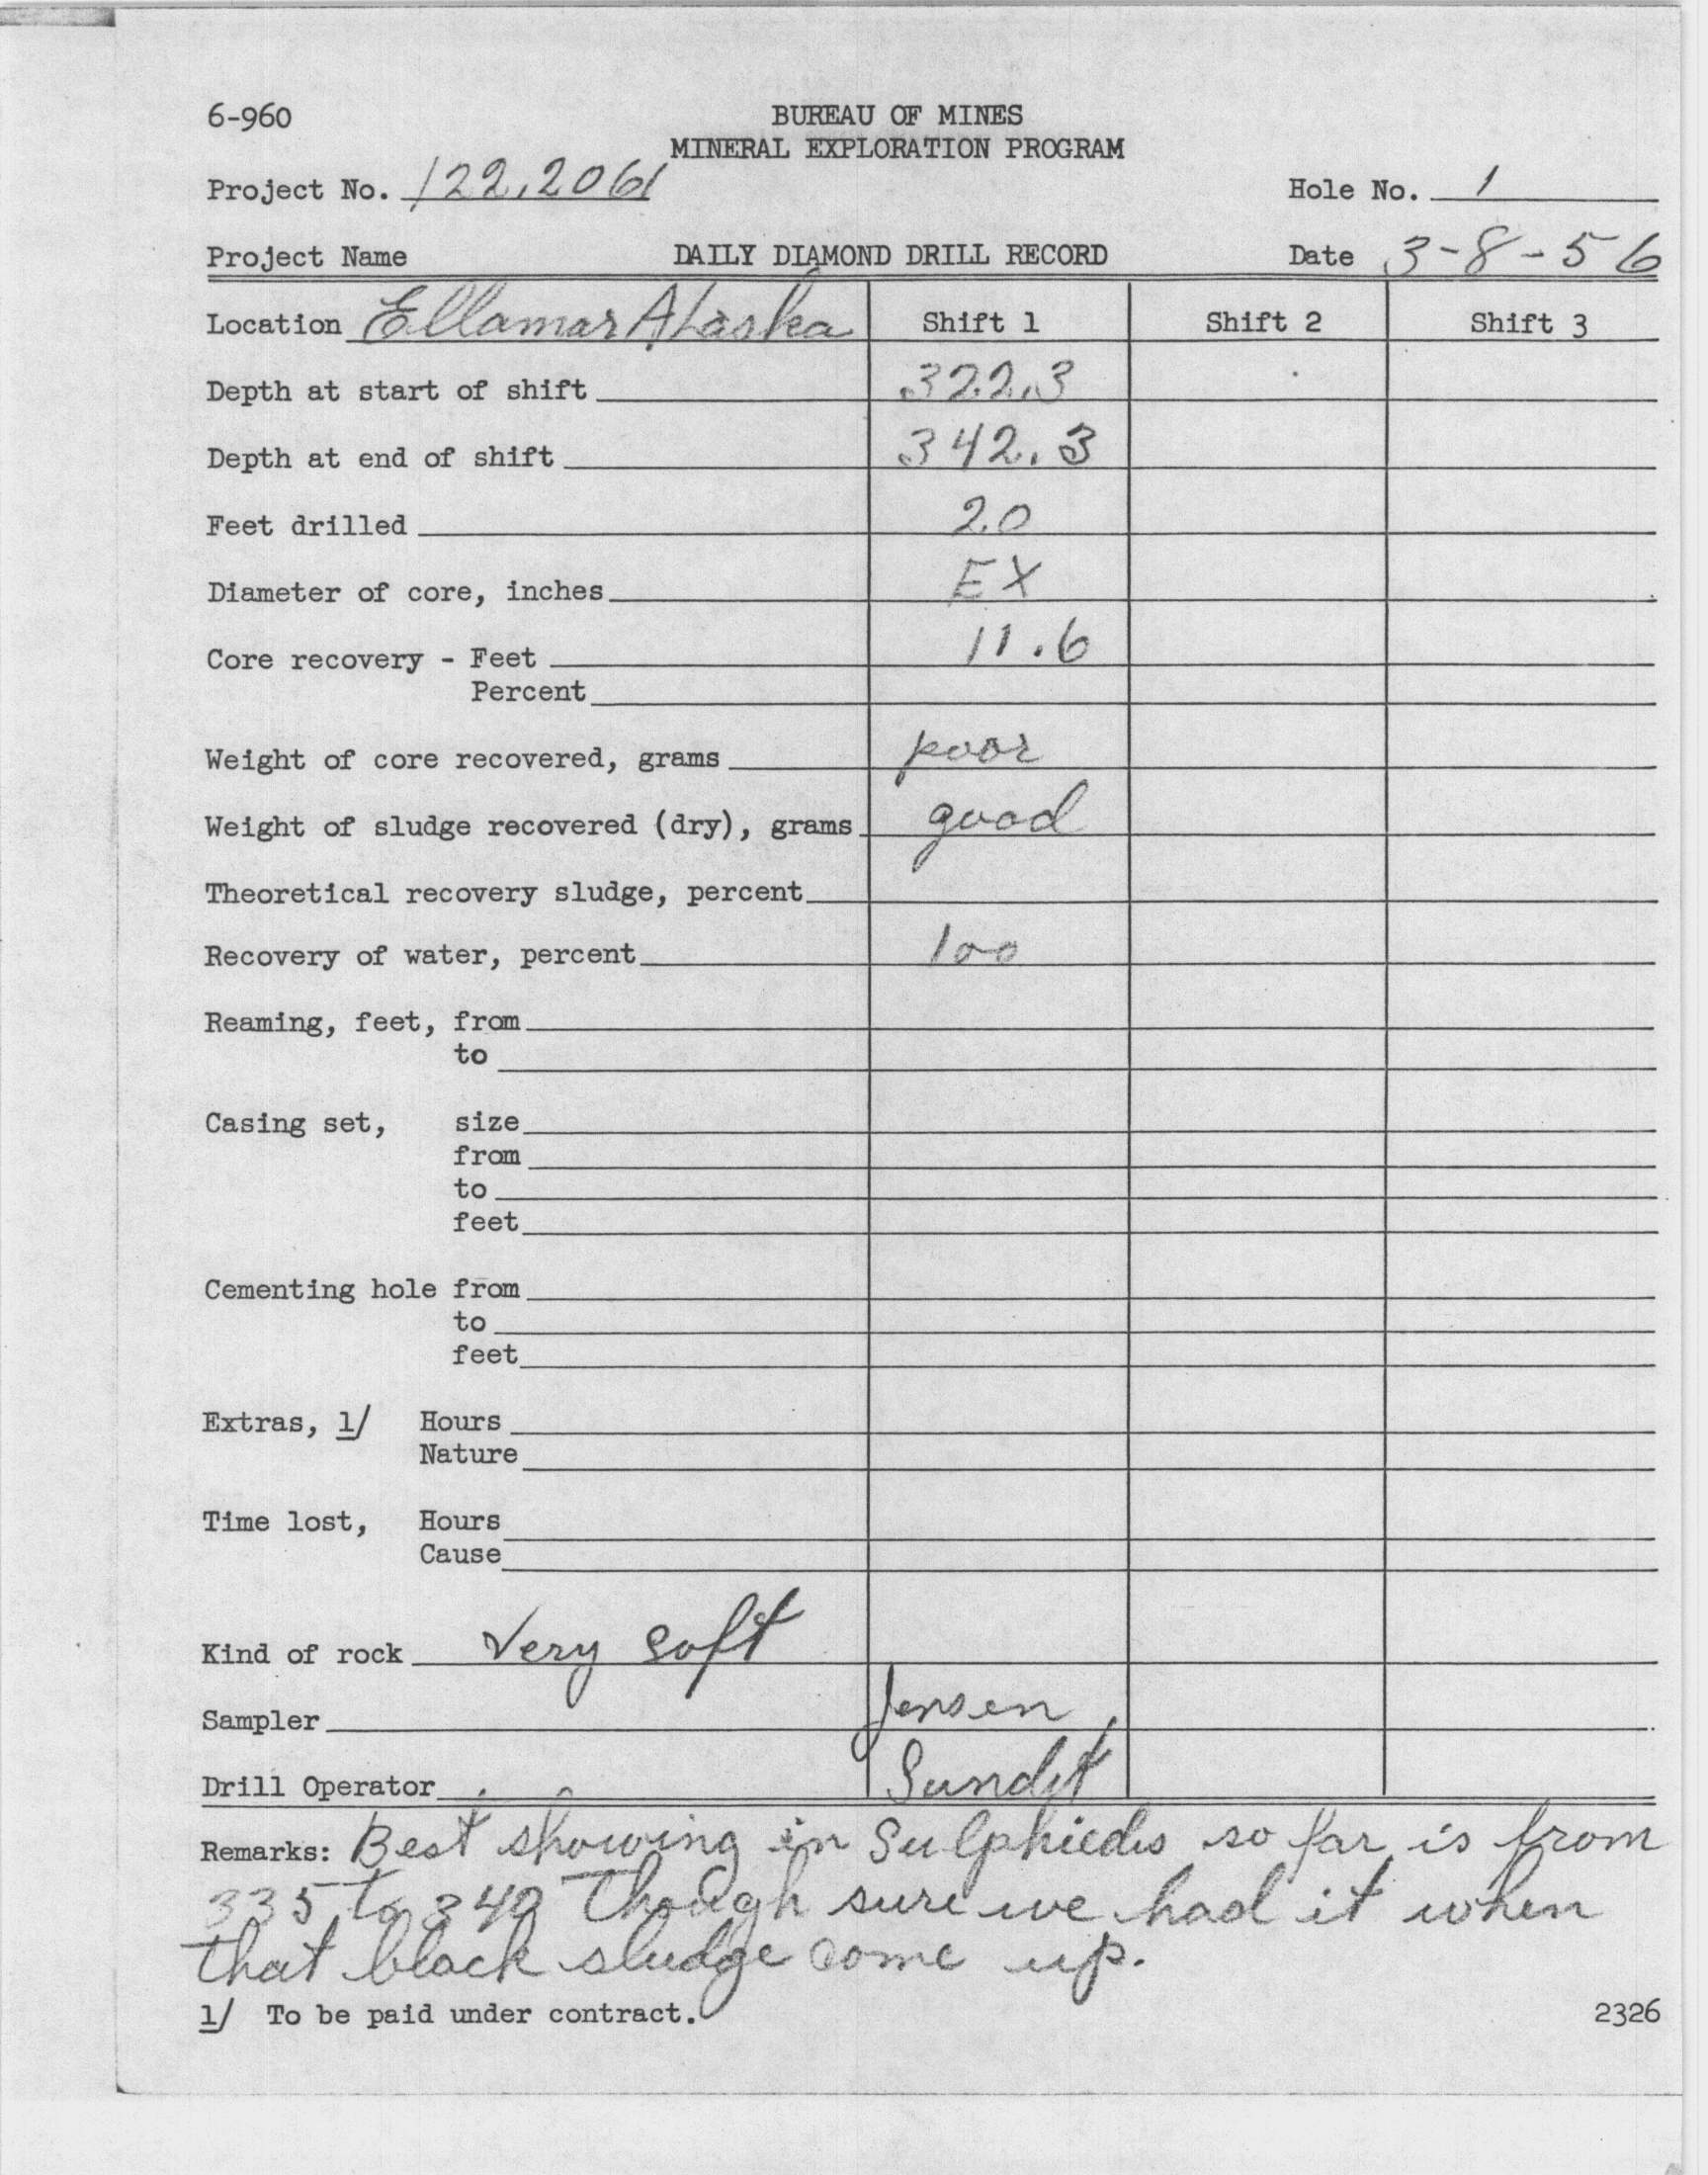 6-960 BUREAU OF MINES
MINERAL EXPLORATION PROGRAM
Project No. 122,2061 Hole No. 1
Project Name DAILY DIAMOND DRILL RECORD Date 3-8-56
Location Ellamar Alaska Shift 1 Shift 2 Shift 3
Depth at start of shift 322.3
Depth at end of shift 342.3
Feet drilled 20
Diameter of core, inches EX
Core recovery - Feet 11.6
Percent
Weight of core recovered, grams poor
Weight of sludge recovered (dry), grams good
Theoretical recovery sludge, percent
Recovery of water, percent 100
Reaming, feet, from
to
Casing set, size
from
to
feet
Cementing hole from
to
feet
Extras, 1/ Hours
Nature
Time lost, Hours
Cause
Kind of rock Very soft
Sampler Jensen
Drill Operator Sundt
Remarks: Best showing in Sulphieds so far is from
335 to 340 Though sure we had it when
that black sludge come up.
1/ To be paid under contract. 2326